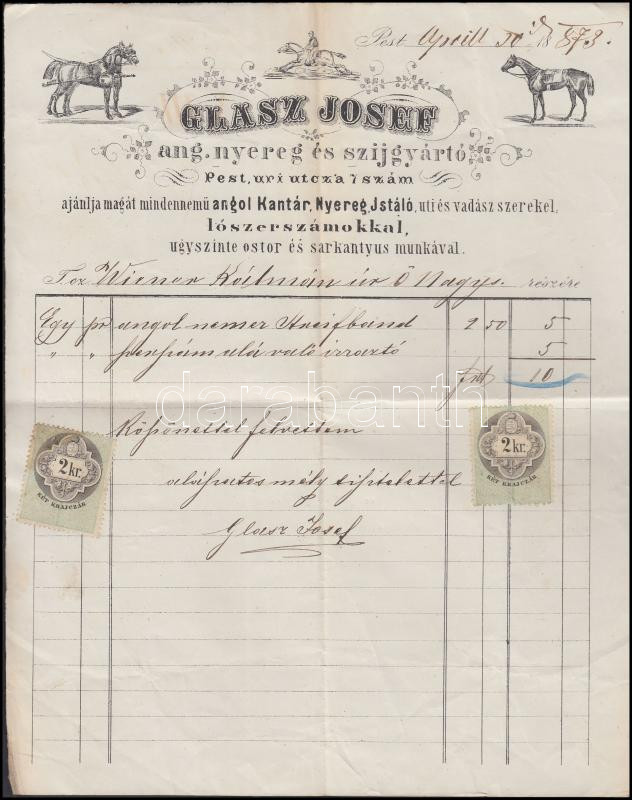 Pest, Aprill 30 1873.
GLASZ JOSEF
ang. nyereg és szijgyártó
Pest, uri utcza 7 szám
ajánlja magát mindennemű angol Kantár, Nyereg, Jstáló, uti és vadász szerekel,
lószerszámokkal,
ugyszinte ostor és sarkantyus munkával.
Wiener Kálmán úr Ő Nagys. részére
Egy pr angol nemer Streifband 2 50 5
" " alá való izzasztó 5
10
darabanth
Köszönettel felvettem
2 kr.
KÉT KRAJCZÁR
2 kr.
KÉT KRAJCZÁR
alázatos mély tisztelettel
Glasz Josef